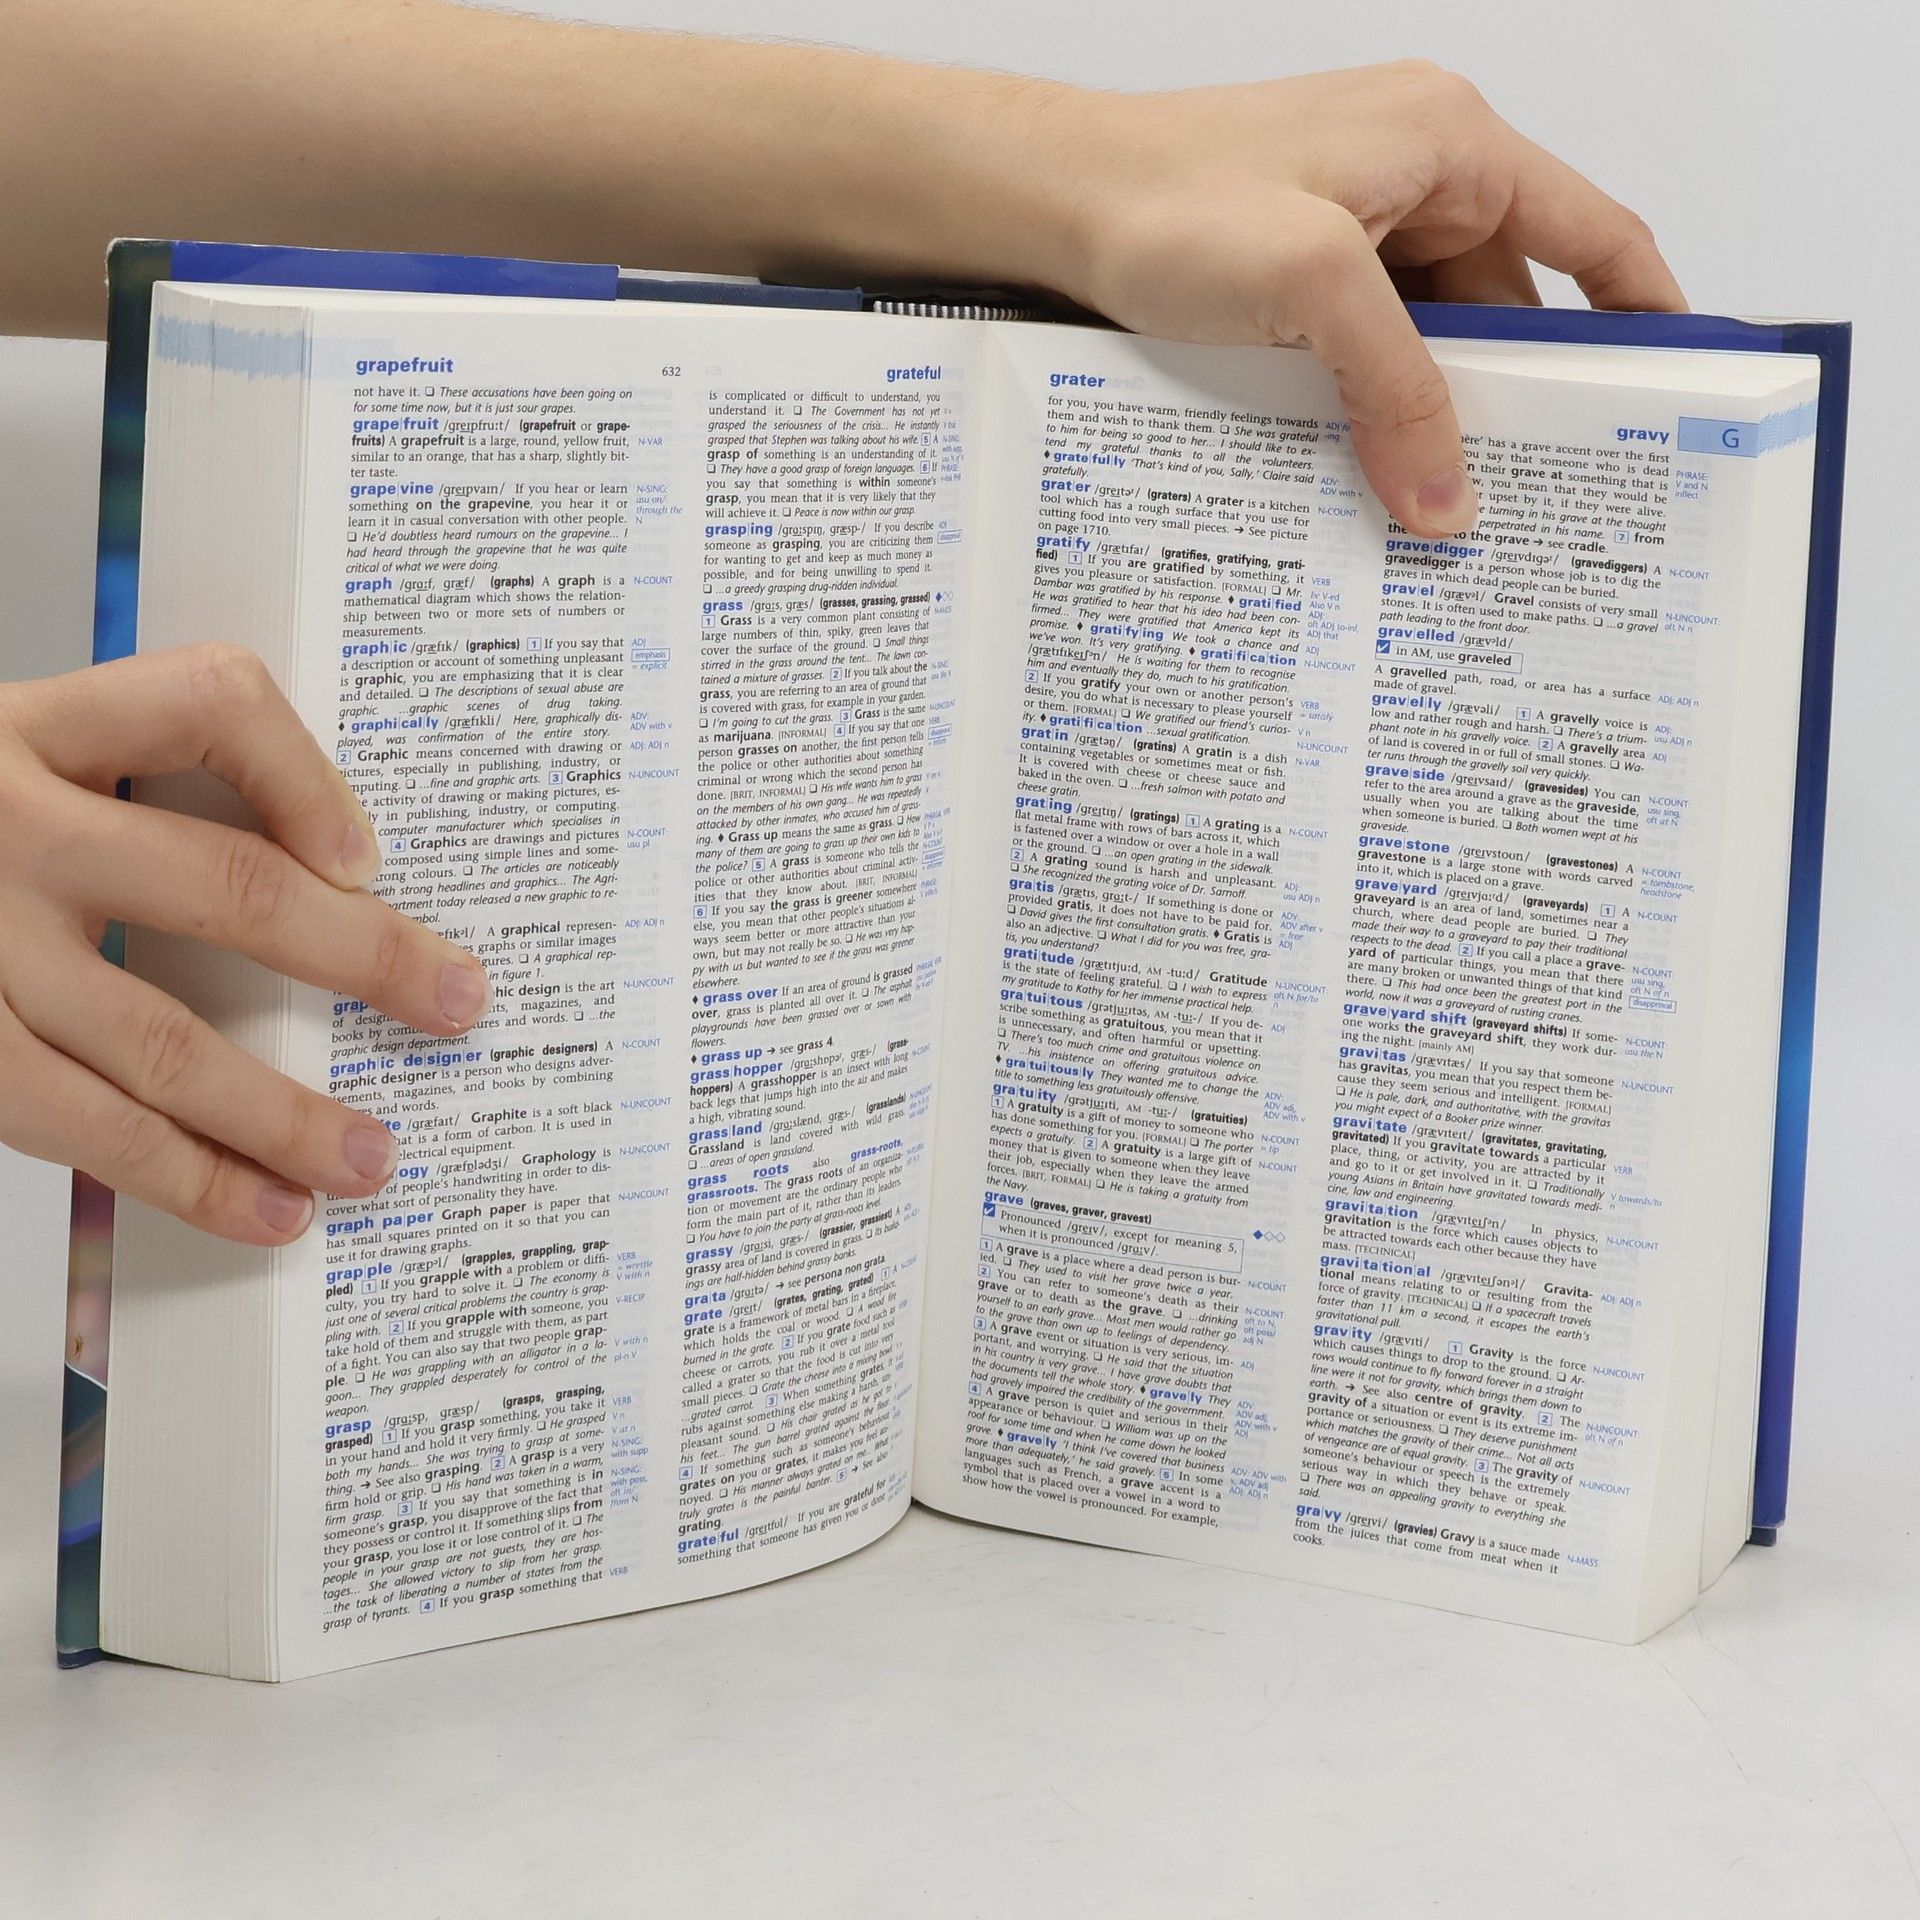 grapefruit
632
grateful
not have it. ❏ These accusations have been going on
for some time now, but it is just sour grapes.
grape|fruit /greɪpfruːt/ (grapefruit or grape-
fruits) A grapefruit is a large, round, yellow fruit, N-VAR
similar to an orange, that has a sharp, slightly bit-
ter taste.
grape|vine /greɪpvaɪn/ If you hear or learn N-SING:
something on the grapevine, you hear it or usu on/
learn it in casual conversation with other people. through the
❏ He'd doubtless heard rumours on the grapevine... I N
had heard through the grapevine that he was quite
critical of what we were doing.
graph /grɑːf, græf/ (graphs) A graph is a N-COUNT
mathematical diagram which shows the relation-
ship between two or more sets of numbers or
measurements.
graph|ic /græfɪk/ (graphics) 1 If you say that ADJ
a description or account of something unpleasant emphasis
is graphic, you are emphasizing that it is clear = explicit
and detailed. ❏ The descriptions of sexual abuse are
graphic. ...graphic scenes of drug taking.
♦ graphi|cal|ly /græfɪkli/ Here, graphically dis- ADV:
played, was confirmation of the entire story. ADV with v
2 Graphic means concerned with drawing or ADJ: ADJ n
pictures, especially in publishing, industry, or
mputing. ❏ ...fine and graphic arts. 3 Graphics N-UNCOUNT
e activity of drawing or making pictures, es-
ly in publishing, industry, or computing.
computer manufacturer which specialises in
4 Graphics are drawings and pictures N-COUNT:
composed using simple lines and some- usu pl
rong colours. ❏ The articles are noticeably
with strong headlines and graphics... The Agri-
artment today released a new graphic to re-
mbol.
A graphical represen- ADJ: ADJ n
es graphs or similar images
igures. ❏ A graphical rep-
in figure 1.
hic design is the art N-UNCOUNT
of design magazines, and
books by comb ures and words. ❏ ...the
graphic design department.
graph|ic de|sign|er (graphic designers) A N-COUNT
graphic designer is a person who designs adver-
isements, magazines, and books by combining
es and words.
te /græfaɪt/ Graphite is a soft black N-UNCOUNT
hat is a form of carbon. It is used in
electrical equipment.
ogy /græfɒlədʒi/ Graphology is N-UNCOUNT
of people's handwriting in order to dis-
cover what sort of personality they have.
graph pa|per Graph paper is paper that N-UNCOUNT
has small squares printed on it so that you can
use it for drawing graphs.
grap|ple /græpəl/ (grapples, grappling, grap- VERB
pled) 1 If you grapple with a problem or diffi- = wrestle
culty, you try hard to solve it. ❏ The economy is V with n
just one of several critical problems the country is grap-
pling with. 2 If you grapple with someone, you V-RECIP
take hold of them and struggle with them, as part
of a fight. You can also say that two people grap- V with n
ple. ❏ He was grappling with an alligator in a la- pl-n V
goon... They grappled desperately for control of the
weapon.
grasp /grɑːsp, græsp/ (grasps, grasping, VERB
grasped) 1 If you grasp something, you take it V n
in your hand and hold it very firmly. ❏ He grasped V at n
both my hands... She was trying to grasp at some- N-SING:
thing. → See also grasping. 2 A grasp is a very with supp
firm hold or grip. ❏ His hand was taken in a warm,
firm grasp. 3 If you say that something is in N-SING:
someone's grasp, you disapprove of the fact that with poss,
they possess or control it. If something slips from oft in/
your grasp, you lose it or lose control of it. ❏ The from N
people in your grasp are not guests, they are hos-
tages... She allowed victory to slip from her grasp.
...the task of liberating a number of states from the
grasp of tyrants. 4 If you grasp something that VERB
is complicated or difficult to understand, you
understand it. ❏ The Government has not yet
grasped the seriousness of the crisis... He instantly
grasped that Stephen was talking about his wife. 5 A
grasp of something is an understanding of it.
❏ They have a good grasp of foreign languages. 6 If
you say that something is within someone's
grasp, you mean that it is very likely that they
will achieve it. ❏ Peace is now within our grasp.
grasp|ing /grɑːspɪŋ, græsp-/ If you describe ADJ
someone as grasping, you are criticizing them disapproval
for wanting to get and keep as much money as
possible, and for being unwilling to spend it.
❏ ...a greedy grasping drug-ridden individual.
grass /grɑːs, græs/ (grasses, grassing, grassed)
1 Grass is a very common plant consisting of
large numbers of thin, spiky, green leaves that
cover the surface of the ground. ❏ Small things
stirred in the grass around the tent... The lawn con-
tained a mixture of grasses. 2 If you talk about the
grass, you are referring to an area of ground that
is covered with grass, for example in your garden.
❏ I'm going to cut the grass. 3 Grass is the same
as marijuana. [INFORMAL] 4 If you say that one
person grasses on another, the first person tells
the police or other authorities about something
criminal or wrong which the second person has
done. [BRIT, INFORMAL] ❏ His wife wants him to grass
on the members of his own gang... He was repeatedly
attacked by other inmates, who accused him of grass-
ing. ♦ Grass up means the same as grass. ❏ How
many of them are going to grass up their own kids to
the police? 5 A grass is someone who tells the
police or other authorities about criminal activ-
ities that they know about. [BRIT, INFORMAL]
6 If you say the grass is greener somewhere
else, you mean that other people's situations al-
ways seem better or more attractive than your
own, but may not really be so. ❏ He was very hap-
py with us but wanted to see if the grass was greener
elsewhere.
♦ grass over If an area of ground is grassed
over, grass is planted all over it. ❏ The asphalt
playgrounds have been grassed over or sown with
flowers.
♦ grass up → see grass 4.
grass|hopper /grɑːshɒpər, græs-/ (grass-
hoppers) A grasshopper is an insect with long
back legs that jumps high into the air and makes
a high, vibrating sound.
grass|land /grɑːslænd, græs-/ (grasslands)
Grassland is land covered with wild grass.
❏ ...areas of open grassland.
grass roots also grass-roots,
grassroots. The grass roots of an organiza-
tion or movement are the ordinary people who
form the main part of it, rather than its leaders.
❏ You have to join the party at grass-roots level.
grassy /grɑːsi, græs-/ (grassier, grassiest) A
grassy area of land is covered in grass. ❏ Its build-
ings are half-hidden behind grassy banks.
gra|ta /grɑːtə/ → see persona non grata.
grate /greɪt/ (grates, grating, grated) 1 A
grate is a framework of metal bars in a fireplace,
which holds the coal or wood. ❏ A wood fire
burned in the grate. 2 If you grate food such as
cheese or carrots, you rub it over a metal tool
called a grater so that the food is cut into very
small pieces. ❏ Grate the cheese into a mixing bowl.
...grated carrot. 3 When something grates, it
rubs against something else making a harsh, un-
pleasant sound. ❏ His chair grated as he got to
his feet... The gun barrel grated against the floor.
4 If something such as someone's behaviour
grates on you or grates, it makes you feel an-
noyed. ❏ His manner always grated on me... What
truly grates is the painful banter. 5 → See also
grating.
grate|ful /greɪtfʊl/ If you are grateful for
something that someone has given you or done
grater
gravy
G
for you, you have warm, friendly feelings towards
them and wish to thank them. ❏ She was grateful
to him for being so good to her... I should like to ex-
tend my grateful thanks to all the volunteers.
♦ grate|ful|ly 'That's kind of you, Sally,' Claire said ADV:
gratefully. ADV with v
grat|er /greɪtər/ (graters) A grater is a kitchen N-COUNT
tool which has a rough surface that you use for
cutting food into very small pieces. → See picture
on page 1710.
grati|fy /grætɪfaɪ/ (gratifies, gratifying, grati-
fied) 1 If you are gratified by something, it VERB
gives you pleasure or satisfaction. [FORMAL] ❏ Mr. be V-ed
Dambar was gratified by his response. ♦ grati|fied Also V n
He was gratified to hear that his idea had been con- ADJ:
firmed... They were gratified that America kept its oft ADJ to-inf,
promise. ♦ grati|fy|ing We took a chance and ADJ that
we've won. It's very gratifying. ♦ grati|fi|ca|tion ADJ
/grætɪfɪkeɪʃən/ He is waiting for them to recognise N-UNCOUNT
him and eventually they do, much to his gratification.
2 If you gratify your own or another person's VERB
desire, you do what is necessary to please yourself = satisfy
or them. [FORMAL] ❏ We gratified our friend's curios- V n
ity. ♦ grati|fi|ca|tion ...sexual gratification. N-UNCOUNT
grat|in /grætæn/ (gratins) A gratin is a dish N-VAR
containing vegetables or sometimes meat or fish.
It is covered with cheese or cheese sauce and
baked in the oven. ❏ ...fresh salmon with potato and
cheese gratin.
grat|ing /greɪtɪŋ/ (gratings) 1 A grating is a N-COUNT
flat metal frame with rows of bars across it, which
is fastened over a window or over a hole in a wall
or the ground. ❏ ...an open grating in the sidewalk.
2 A grating sound is harsh and unpleasant. ADJ:
❏ She recognized the grating voice of Dr. Sarnoff. usu ADJ n
gra|tis /grætɪs, grɑːt-/ If something is done or ADV:
provided gratis, it does not have to be paid for. ADV after v
❏ David gives the first consultation gratis. ♦ Gratis is = free
also an adjective. ❏ What I did for you was free, gra- ADJ
tis, you understand?
grati|tude /grætɪtjuːd, AM -tuːd/ Gratitude N-UNCOUNT:
is the state of feeling grateful. ❏ I wish to express oft N for/to
my gratitude to Kathy for her immense practical help. n
gra|tui|tous /grətjuːɪtəs, AM -tuː-/ If you de- ADJ
scribe something as gratuitous, you mean that it
is unnecessary, and often harmful or upsetting.
❏ There's too much crime and gratuitous violence on
TV. ...his insistence on offering gratuitous advice.
♦ gra|tui|tous|ly They wanted me to change the ADV:
title to something less gratuitously offensive. ADV adj,
gra|tu|ity /grətjuːɪti, AM -tuː-/ (gratuities) ADV with v
1 A gratuity is a gift of money to someone who N-COUNT
has done something for you. [FORMAL] ❏ The porter = tip
expects a gratuity. 2 A gratuity is a large gift of N-COUNT
money that is given to someone when they leave
their job, especially when they leave the armed
forces. [BRIT, FORMAL] ❏ He is taking a gratuity from
the Navy.
grave (graves, graver, gravest)
Pronounced /greɪv/, except for meaning 5,
when it is pronounced /grɑːv/.
1 A grave is a place where a dead person is bur- N-COUNT
ied. ❏ They used to visit her grave twice a year.
2 You can refer to someone's death as their N-COUNT:
grave or to death as the grave. ❏ ...drinking oft to N,
yourself to an early grave... Most men would rather go oft poss/
to the grave than own up to feelings of dependency. adj N
3 A grave event or situation is very serious, im- ADJ
portant, and worrying. ❏ He said that the situation
in his country is very grave... I have grave doubts that
the documents tell the whole story. ♦ grave|ly They ADV:
had gravely impaired the credibility of the government. ADV adj,
4 A grave person is quiet and serious in their ADV with v
appearance or behaviour. ❏ William was up on the ADJ
roof for some time and when he came down he looked
grave. ♦ grave|ly 'I think I've covered that business
more than adequately,' he said gravely. 5 In some
languages such as French, a grave accent is a ADJ: ADJ n
symbol that is placed over a vowel in a word to
show how the vowel is pronounced. For example,
has a grave accent over the first
you say that someone who is dead PHRASE:
n their grave at something that is V and N
w, you mean that they would be inflect
upset by it, if they were alive.
turning in his grave at the thought
perpetrated in his name. 7 from
the to the grave → see cradle.
grave|digger /greɪvdɪgər/ (gravediggers) A N-COUNT
gravedigger is a person whose job is to dig the
graves in which dead people can be buried.
grav|el /grævəl/ Gravel consists of very small N-UNCOUNT:
stones. It is often used to make paths. ❏ ...a gravel oft N n
path leading to the front door.
grav|elled /grævəld/
in AM, use graveled
A gravelled path, road, or area has a surface ADJ: ADJ n
made of gravel.
grav|el|ly /grævəli/ 1 A gravelly voice is ADJ:
low and rather rough and harsh. ❏ There's a trium- usu ADJ n
phant note in his gravelly voice. 2 A gravelly area ADJ
of land is covered in or full of small stones. ❏ Wa-
ter runs through the gravelly soil very quickly.
grave|side /greɪvsaɪd/ (gravesides) You can N-COUNT:
refer to the area around a grave as the graveside, usu sing,
usually when you are talking about the time oft at N
when someone is buried. ❏ Both women wept at his
graveside.
grave|stone /greɪvstoʊn/ (gravestones) A N-COUNT
gravestone is a large stone with words carved = tombstone,
into it, which is placed on a grave. headstone
grave|yard /greɪvjɑːrd/ (graveyards) 1 A N-COUNT
graveyard is an area of land, sometimes near a
church, where dead people are buried. ❏ They
made their way to a graveyard to pay their traditional
respects to the dead. 2 If you call a place a grave- N-COUNT:
yard of particular things, you mean that there usu sing,
are many broken or unwanted things of that kind oft N of n
there. ❏ This had once been the greatest port in the disapproval
world, now it was a graveyard of rusting cranes.
grave|yard shift (graveyard shifts) If some- N-COUNT:
one works the graveyard shift, they work dur- usu the N
ing the night. [mainly AM]
gravi|tas /grævɪtæs/ If you say that someone N-UNCOUNT
has gravitas, you mean that you respect them be-
cause they seem serious and intelligent. [FORMAL]
❏ He is pale, dark, and authoritative, with the gravitas
you might expect of a Booker prize winner.
gravi|tate /grævɪteɪt/ (gravitates, gravitating,
gravitated) If you gravitate towards a particular VERB
place, thing, or activity, you are attracted by it
and go to it or get involved in it. ❏ Traditionally V towards/to
young Asians in Britain have gravitated towards medi- n
cine, law and engineering.
gravi|ta|tion /grævɪteɪʃən/ In physics, N-UNCOUNT
gravitation is the force which causes objects to
be attracted towards each other because they have
mass. [TECHNICAL]
gravi|ta|tion|al /grævɪteɪʃənəl/ Gravita- ADJ: ADJ n
tional means relating to or resulting from the
force of gravity. [TECHNICAL] ❏ If a spacecraft travels
faster than 11 km a second, it escapes the earth's
gravitational pull.
grav|ity /grævɪti/ 1 Gravity is the force N-UNCOUNT
which causes things to drop to the ground. ❏ Ar-
rows would continue to fly forward forever in a straight
line were it not for gravity, which brings them down to
earth. → See also centre of gravity. 2 The N-UNCOUNT:
gravity of a situation or event is its extreme im- oft N of n
portance or seriousness. ❏ They deserve punishment
which matches the gravity of their crime... Not all acts
of vengeance are of equal gravity. 3 The gravity of N-UNCOUNT
someone's behaviour or speech is the extremely
serious way in which they behave or speak.
❏ There was an appealing gravity to everything she
said.
gra|vy /greɪvi/ (gravies) Gravy is a sauce made N-MASS
from the juices that come from meat when it
cooks.